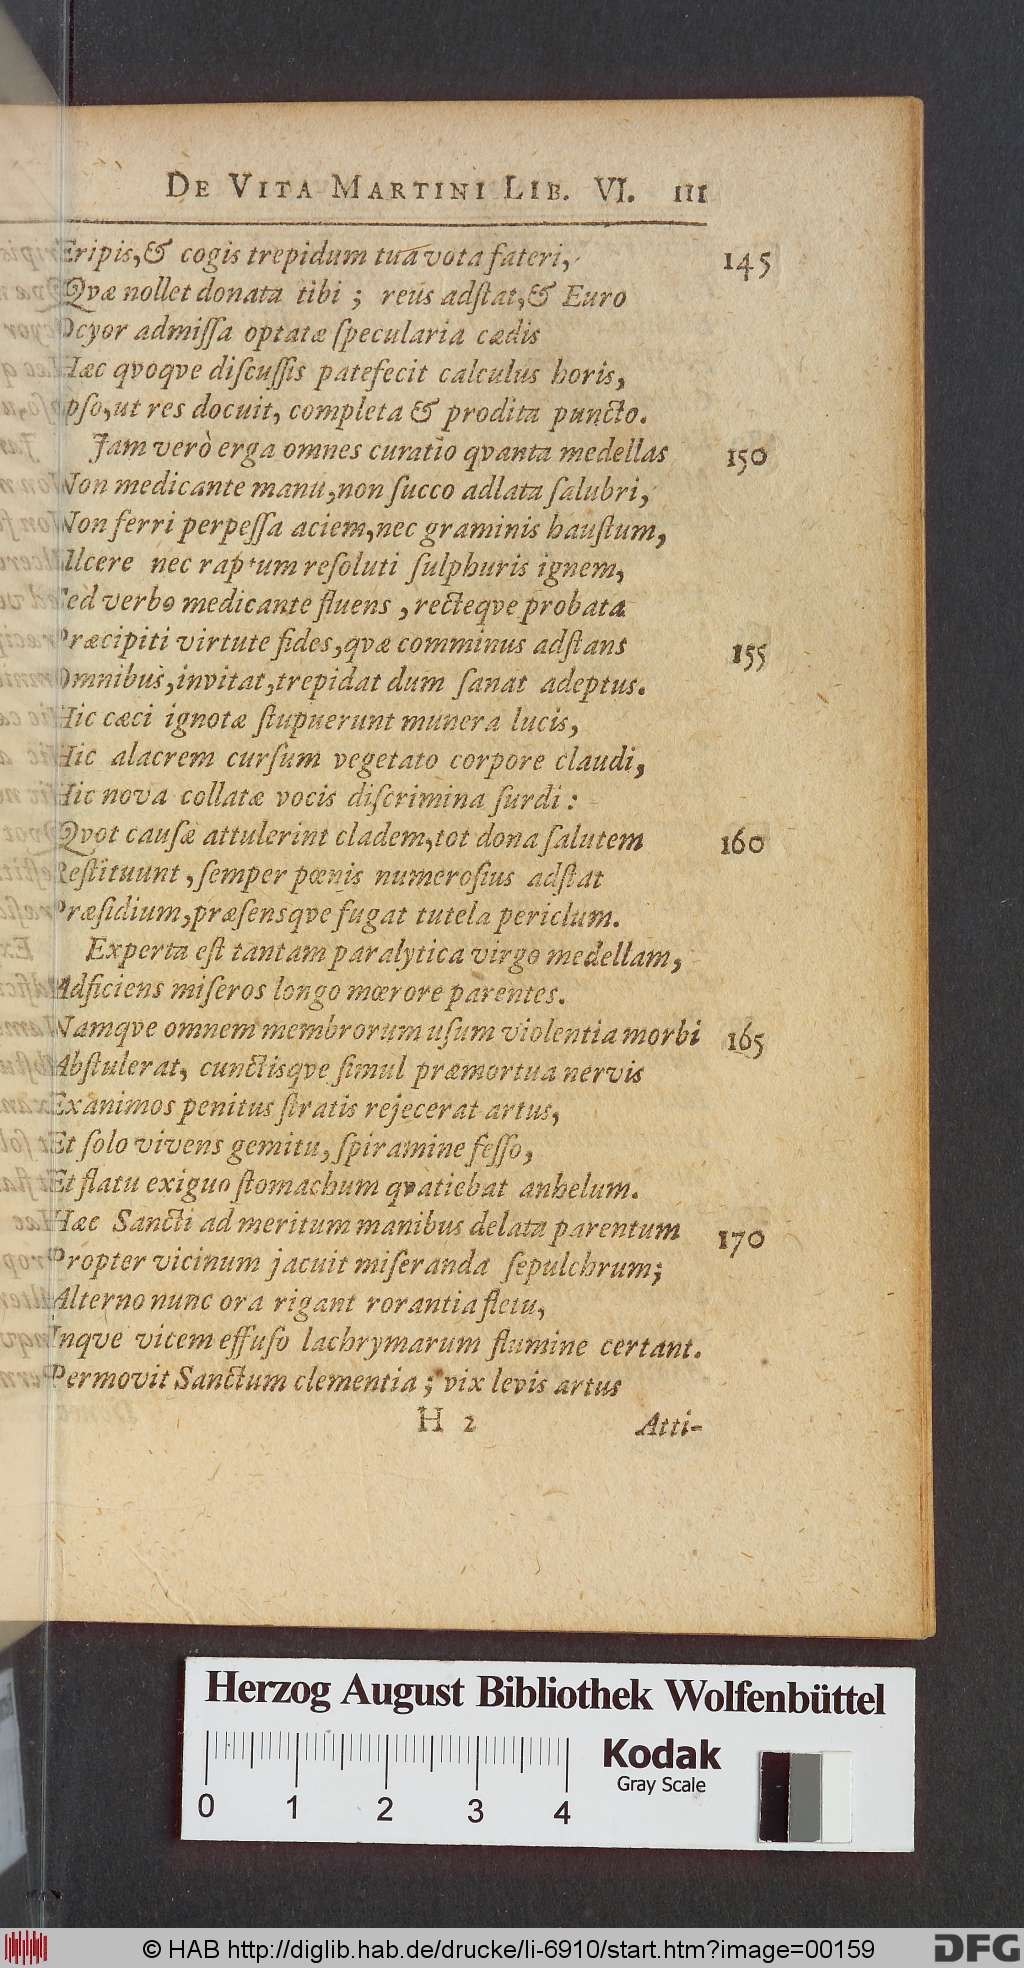 DE VITA MARTINI LIB. VI. 111
Eripis, & cogis trepidum tua vota fateri, 145
Qvæ nollet donata tibi ; reus adſtat, & Euro
Ocyor admiſſa optatæ ſpecularia cædis
Hæc qvoqve diſcuſſis patefecit calculus horis,
Ipſo, ut res docuit, completa & prodita puncto.
Jam verò erga omnes curatio qvanta medellas 150
Non medicante manu, non ſucco adlata ſalubri,
Non ferri perpeſſa aciem, nec graminis hauſtum,
Ulcere nec raptum reſoluti ſulphuris ignem,
Sed verbo medicante fluens, recteqve probata
Præcipiti virtute fides, qvæ comminus adſtans 155
Omnibus, invitat, trepidat dum ſanat adeptus.
Hic cæci ignotæ ſtupuerunt munera lucis,
Hic alacrem curſum vegetato corpore claudi,
Hic nova collatæ vocis diſcrimina ſurdi :
Qvot cauſæ attulerint cladem, tot dona ſalutem 160
Reſtituunt, ſemper pœnis numeroſius adſtat
Præſidium, præſensqve fugat tutela periclum.
Experta eſt tantam paralytica virgo medellam,
Adficiens miſeros longo mœrore parentes.
Namqve omnem membrorum uſum violentia morbi 165
Abſtulerat, cunctisqve ſimul præmortua nervis
Exanimos penitus ſtratis rejecerat artus,
Et ſolo vivens gemitu, ſpiramine feſſo,
Et flatu exiguo ſtomachum qvatiebat anhelum.
Hæc Sancti ad meritum manibus delata parentum 170
Propter vicinum jacuit miſeranda ſepulchrum;
Alterno nunc ora rigant rorantia fletu,
Inqve vicem effuſo lachrymarum flumine certant.
Permovit Sanctum clementia ; vix levis artus
H 2 Atti-
Herzog August Bibliothek Wolfenbüttel
Kodak
Gray Scale
0 1 2 3 4
© HAB http://diglib.hab.de/drucke/li-6910/start.htm?image=00159
DFG